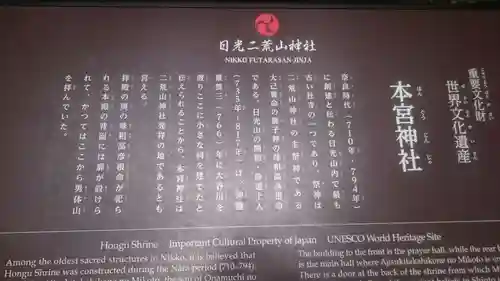 日光二荒山神社
NIKKO FUTARASAN-JINJA
重要文化財
世界文化遺産
本宮神社
ほん ぐう じん じゃ
奈良時代(710年-794年)
に創建と伝わる日光山内で最も
古い社寺の一つであり、祭神は
二荒山神社の主祭神である
大己貴命の御子神の味耜高彦根命
である。日光山の開祖・勝道上人
(735年-817年)は、神護
景雲二(766)年に大谷川を
渡りここに小さな祠を建てたと
伝えられることから、本宮神社は
二荒山神社発祥の地であるとも
言える。
拝殿の奥の味耜高彦根命が祀ら
れる本殿の背面には扉が設けら
れて、かつてはここから男体山
を拝んでいた。
Hongu Shrine Important Cultural Property of Japan UNESCO World Heritage Site
Among the oldest sacred structures in Nikko, it is believed that
Hongu Shrine was constructed during the Nara period (710-794).
The building to the front is the prayer hall, while the rear
is the main hall where Ajisukitakahikone no Mikoto is
There is a door at the back of the shrine from which M